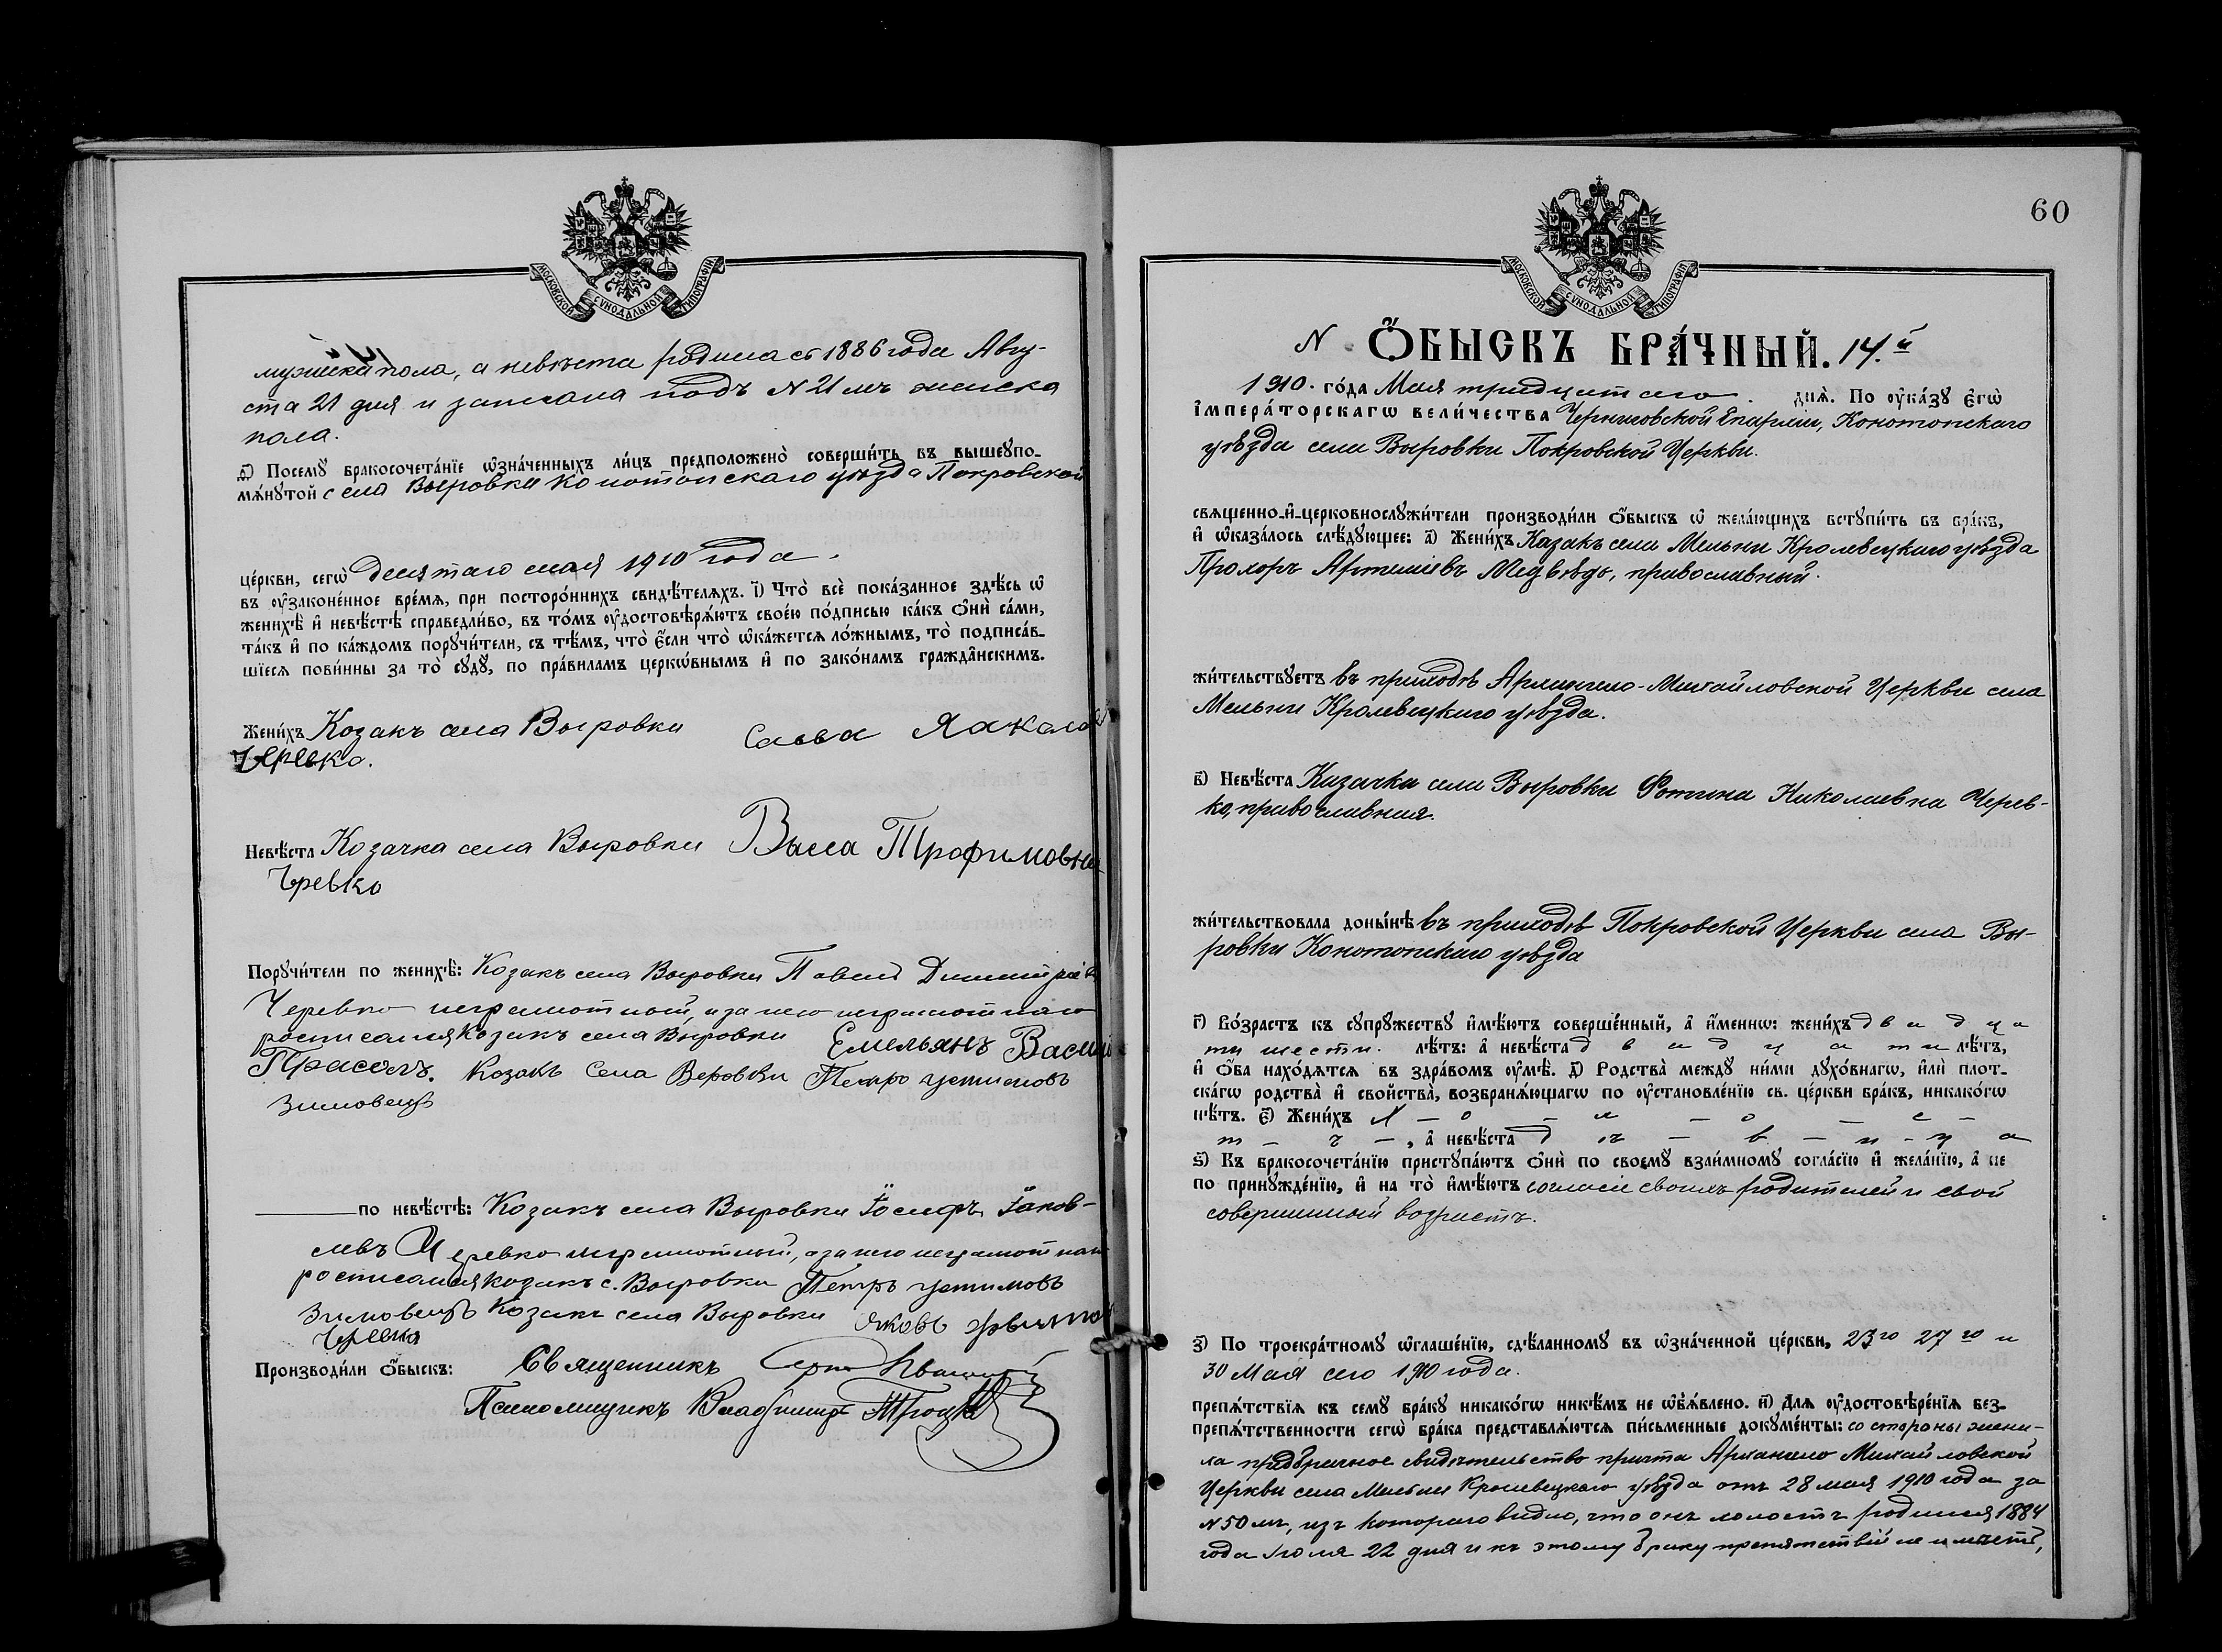 МОСКОВСКОЙ СѴНОДАЛЬНОЙ ТИПОГРАФІИ
мужска пола, а невѣста родилась 1886 года Авгу-
ста 21 дня и записана подъ N 21 мъ женска
пола.
Ѳ҃) Посемꙋ бракосочета́нїе ѡ҆зна́ченныхъ ли́цъ предположено̀ соверши́ть въ вышеꙋпо-
мѧ́нꙋтой села Выровки Конотопскаго уѣзда Покровской
це́ркви, сегѡ̀ десятаго мая 1910 года.
въ ѹ҆законе́нное вре́мѧ, при посторо́ннихъ свидѣ́телѧхъ. і҃) Что̀ всѐ пока́занное здѣ́сь ѡ҆
женихѣ̀ и҆ невѣ́стѣ справедли́во, въ то́мъ ѹ҆достовѣрѧ́ютъ свое́ю по́дписью ка́къ ѻ҆нѝ са́ми,
та́къ и҆ по ка́ждомъ порꙋчи́тели, съ тѣ́мъ, что̀ є҆́сли что̀ ѡ҆ка́жетсѧ ло́жнымъ, то̀ подписа́в-
шїесѧ пови́нны за то̀ сꙋдꙋ̀, по пра́виламъ церкѡ́внымъ и҆ по зако́намъ гражда̑нскимъ.
Жени́хъ Козакъ села Выровки Савва
Черевко.
Невѣ́ста Козачка села Выровки Васса Трофимовна
Чревко
Порꙋчи́тели по женихѣ̀: Козакъ села Выровки Павелъ Димитріевъ
Черевко неграмотный, а за него неграмотнаго
росписался Козакъ села Выровки Емельянъ
Прасолъ. Козакъ Села Веровки Петро устимовъ
Зимовецъ
по невѣ́стѣ: Козакъ села Выровки Іосифъ Іаков-
левъ Черевко неграмотный, а за него неграмотнаго
росписался козакъ с. Выровки Петръ устимовъ
Зимовецъ Козакъ села Выровки Яковъ
Черевко
Производи́ли ѻ҆́быскъ: Священникъ
Псаломщикъ Владимиръ Троцк
60
МОСКОВСКОЙ СѴНОДАЛЬНОЙ ТИПОГРАФІИ
N Ѻ҆́БЫСКЪ БРА́ЧНЫЙ. 14.й
1910. го́да Мая тридцатаго. днѧ̀. По ѹ҆ка́зꙋ є҆гѡ̀
і҆мпера́торскагѡ вели́чества Черниговской Епархіи, Конотопскаго
уѣзда села Выровки Покровской Церкви.
свѧщенно-и҆-церковнослꙋжи́тели производи́ли ѻ҆́быскъ ѡ҆ жела́ющихъ встꙋпи́ть въ бра́къ,
и҆ ѡ҆каза́лось слѣ́дꙋющее: а҃) Жени́хъ Казакъ села Мельни Кролевецкаго уѣзда
Прохоръ Артеміевъ Медвѣдь, православный.
жи́тельствꙋетъ въ приходѣ Архангело-Михайловской Церкви села
Мельни Кролевецкаго уѣзда.
в҃) Невѣ́ста Казачка села Выровки Фотина Николаевна Черев-
ко, православная.
жи́тельствовала доны́нѣ въ приходѣ Покровской Церкви села Вы-
ровки Конотопскаго уѣзда
г҃) Во́зрастъ къ сꙋпрꙋ́жествꙋ и҆мѣ́ютъ соверше́нный, а҆ и҆́меннѡ: жени́хъ двадца
ти шести. лѣ́тъ: а҆ невѣ́ста двадцати лѣ́тъ,
и҆ ѻ҆́ба нахо́дѧтсѧ въ здра́вомъ ѹ҆мѣ̀. д҃) Родства̀ междꙋ̀ ни́ми дꙋхо́внагѡ, и҆лѝ плот-
ска́гѡ родства̀ и҆ свойства̀, возбранѧ́ющагѡ по ѹ҆становле́нїю св. це́ркви бра́къ, никако́гѡ
нѣ́тъ. є҃) Жени́хъ Х – о – л – о – с –
т – ъ –, а҆ невѣ́ста д ѣ – в – и – ц а
ѕ҃) Къ бракосочета́нїю пристꙋпа́ютъ ѻ҆нѝ по своемꙋ̀ взаи́мномꙋ согла́сїю и҆ жела́нїю, а҆ не
по принꙋжде́нїю, и҆ на то̀ и҆мѣ́ютъ согласіе своихъ родителей и свой
совершенный возрастъ.
з҃) По троекра́тномꙋ ѡ҆глаше́нїю, сдѣ́ланномꙋ въ ѡ҆зна́ченной це́ркви, 23го 27го и
30 Мая сего 1910 года.
препѧ́тствїѧ къ семꙋ̀ бра́кꙋ никако́гѡ никѣ́мъ не ѡ҆б̾ѧ́влено. и҃) Длѧ ѹ҆достовѣре́нїѧ без-
препѧ́тственности сегѡ̀ бра́ка представлѧ́ютсѧ пи́сьменные докꙋме́нты: со стороны жени-
ха предбрачное свидѣтельство причта Архангело Михайловской
Церкви села Мельни Кролевецкаго уѣзда отъ 28 мая 1910 года за
N 50 мъ, изъ котораго видно, что онъ холостъ родился 1884
года Іюля 22 дня и къ этому браку препятствій не имѣетъ,